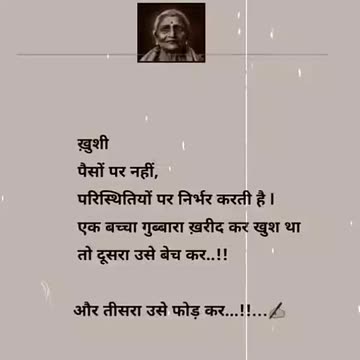 ख़ुशी
पैसों पर नहीं,
परिस्थितियों पर निर्भर करती है।
एक बच्चा गुब्बारा ख़रीद कर खुश था
तो दूसरा उसे बेच कर..!!
और तीसरा उसे फोड़ कर...!!...✍